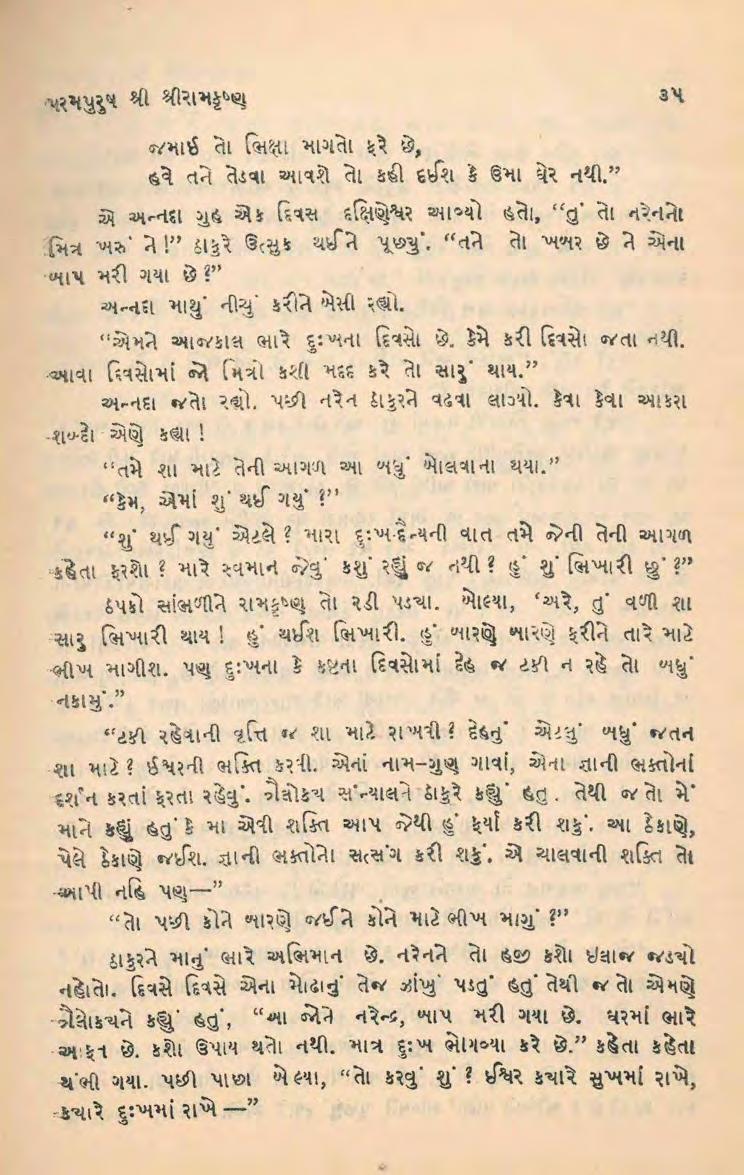 પરમપુરુષ શ્રી શ્રીરામકૃષ્ણ ૩૫
જમાઈ તો ભિક્ષા માગતો ફરે છે,
હવે તને તેડવા આવશે તો કહી દઈશ કે ઉમા ઘેર નથી.”
એ અન્નદા ગુહ એક દિવસ દક્ષિણેશ્વર આવ્યો હતો, “તું તો નરેનનો
મિત્ર ખરું ને!” ઠાકુરે ઉત્સુક થઈને પૂછ્યું. “તને તો ખબર છે ને એના
બાપ મરી ગયા છે?”
અન્નદા માથું નીચું કરીને બેસી રહ્યો.
“એમને આજકાલ ભારે દુઃખના દિવસો છે. કેમે કરી દિવસો જતા નથી.
આવા દિવસોમાં જો મિત્રો કશી મદદ કરે તો સારું થાય.”
અન્નદા જતો રહ્યો. પછી નરેન ઠાકુરને વઢવા લાગ્યો. કેવા કેવા આકરા
શબ્દો એણે કહ્યા!
“તમે શા માટે તેની આગળ આ બધું બોલવાના થયા.”
“કેમ, એમાં શું થઈ ગયું?”
“શું થઈ ગયું એટલે? મારા દુઃખ-દૈન્યની વાત તમે જેની તેની આગળ
કહેતા ફરશો? મારે સ્વમાન જેવું કશું રહ્યું જ નથી? હું શું ભિખારી છું?”
ઠપકો સાંભળીને રામકૃષ્ણ તો રડી પડ્યા. બોલ્યા, ‘અરે, તું વળી શા
સારુ ભિખારી થાય! હું થઈશ ભિખારી. હું બારણે બારણે ફરીને તારે માટે
ભીખ માગીશ. પણ દુઃખના કે કષ્ટના દિવસોમાં દેહ જ ટકી ન રહે તો બધું
નકામું.”
“ટકી રહેવાની વૃત્તિ જ શા માટે રાખવી? દેહનું એટલું બધું જતન
શા માટે? ઈશ્વરની ભક્તિ કરવી. એનાં નામ-ગુણ ગાવાં, એના જ્ઞાની ભક્તોનાં
દર્શન કરતાં ફરતા રહેવું. ત્રૈલોકય સંન્યાલને ઠાકુરે કહ્યું હતું. તેથી જ તો મેં
માને કહ્યું હતું કે મા એવી શક્તિ આપ જેથી હું ફર્યા કરી શકું. આ ઠેકાણે,
પેલે ઠેકાણે જઈશ. જ્ઞાની ભક્તોનો સત્સંગ કરી શકું. એ ચાલવાની શક્તિ તો
આપી નહિ પણ—”
“તો પછી કોને બારણે જઈને કોને માટે ભીખ માગું?”
ઠાકુરને માનું ભારે અભિમાન છે. નરેનને તો હજી કશો ઇલાજ જડ્યો
નહોતો. દિવસે દિવસે એના મોઢાનું તેજ ઝાંખું પડતું હતું તેથી જ તો એમણે
ત્રૈલોકયને કહ્યું હતું, “આ જોને નરેન્દ્ર, બાપ મરી ગયા છે. ઘરમાં ભારે
આફત છે. કશો ઉપાય થતો નથી. માત્ર દુઃખ ભોગવ્યા કરે છે.” કહેતા કહેતા
થંભી ગયા. પછી પાછા બોલ્યા, “તો કરવું શું? ઈશ્વર કયારે સુખમાં રાખે,
કયારે દુઃખમાં રાખે —”